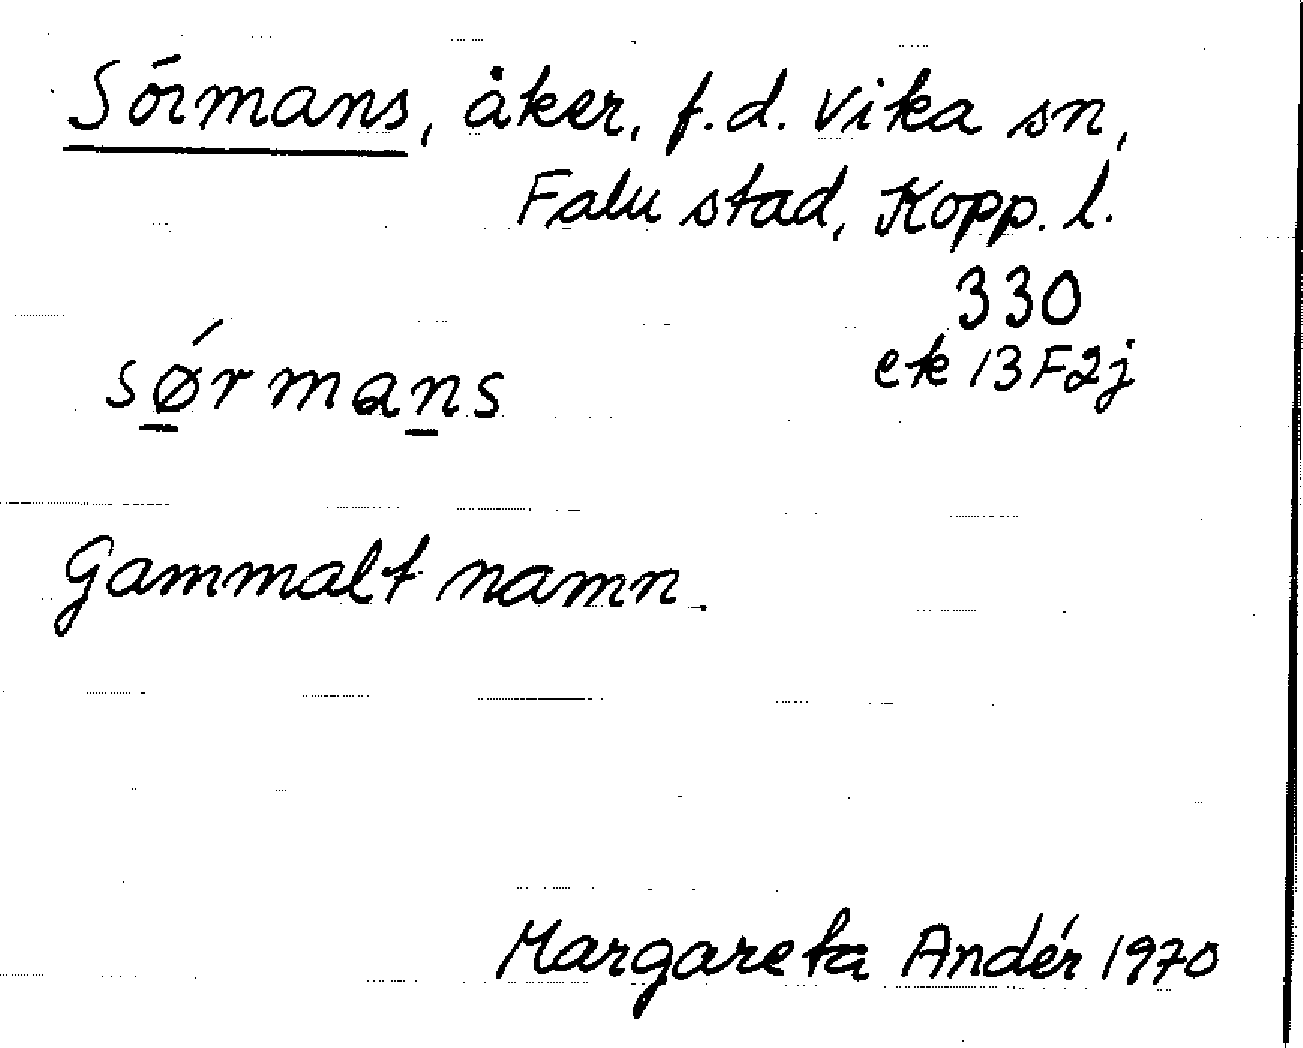 Sörmans, åker, f.d. Vika sn,
Falu stad, Kopp. l.
330
ek 13F2j
sǿ̱rmaṉs
Gammalt namn.
Margareta Andér 1970